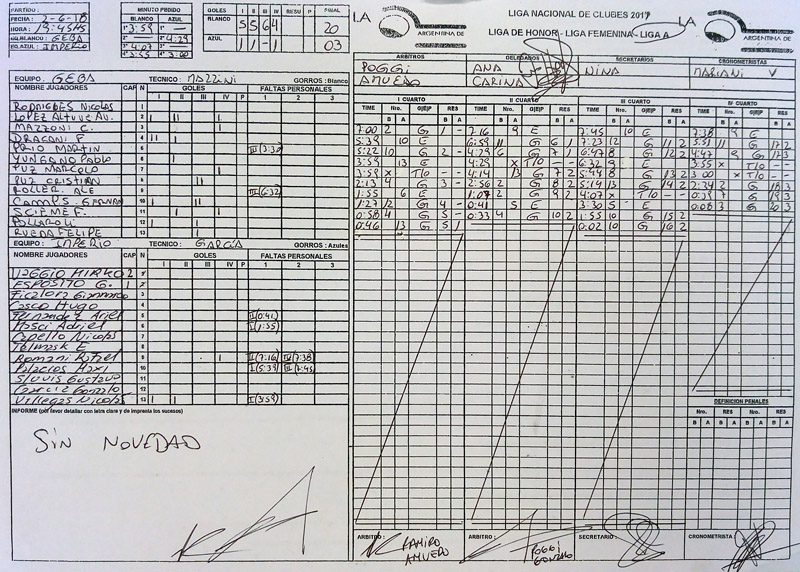 PARTIDO :
FECHA : 2-6-18
HORA : 19:45HS
EQ.BLANCO : GEBA
EQ.AZUL : IMPERIO
MINUTO PEDIDO
BLANCO AZUL
1º 3:59 1º
2º 2º 4:29
3º 4:07 3º
4º 3:55 4º 3:00
GOLES I II III IV RESU P FINAL
BLANCO 5 5 6 4 20
AZUL 1 1 - 1 03
LA
ARGENTINA DE
LIGA NACIONAL DE CLUBES 2017
LIGA DE HONOR - LIGA FEMENINA - LIGA A
LA
ARGENTINA DE
ARBITROS DELEGADOS SECRETARIOS CRONOMETRISTAS
POGGI ANA NINA MARIANI
AMUEDO CARINA
EQUIPO : GEBA TECNICO : MAZZINI GORROS : Blanco
NOMBRE JUGADORES CAP N GOLES FALTAS PERSONALES
I II III IV P 1 2 3
RODRIGUES NICOLAS 1
LOPEZ 2
MAZZONI C. 3
DRAGONI F 4
PRIO MARTIN 5 III (3:30)
YUNGANO PABLO 6
7
CRISTIAN 8
ROLLER ALE 9 III (6:32)
CAMPS 10
SCIEME F. 11
12
RUEDA FELIPE 13
EQUIPO : IMPERIO TECNICO : GARCÍA GORROS : Azules
NOMBRE JUGADORES CAP N GOLES FALTAS PERSONALES
I II III IV P 1 2 3
1
ESPOSITO G. 2
3
Casco Hugo 4
Fernandez Ariel 5 II (0:41)
Masci Adriel 6 I (1:55)
Capello Nicolas 7
E 8
Romani 9 II (7:16) IV (7:38)
Palacios Maxi 10 I (5:39) III (7:45)
Gustavo 11
Garcia Gonzalo 12
Villegas Nicolas 13 I (3:59)
INFORME (por favor detallar con letra clara y de imprenta los sucesos)
SIN NOVEDAD
I CUARTO II CUARTO III CUARTO IV CUARTO
TIME Nro. G|E|P RES TIME Nro. G|E|P RES TIME Nro. G|E|P RES TIME Nro. G|E|P RES
B A B A B A B A B A B A B A B A
7:00 2 G 1 - 7:16 9 E 7:45 10 E 7:38 9 E
5:39 10 E 6:59 11 G 6 1 7:23 12 G 11 2 5:51 11 G 17 2
5:22 10 G 2 - 4:29 6 G 7 1 6:47 8 G 12 2 4:47 9 G 17 3
3:59 13 E 4:29 x T/O - - 6:32 9 E 3:55 x T/O - -
3:59 x T/O - - 4:14 13 G 7 2 5:44 8 G 13 2 3:00 x T/O - -
2:13 4 G 3 - 2:56 2 G 8 2 5:14 13 G 14 2 2:34 2 G 18 3
1:55 6 E 1:07 2 G 9 2 4:07 x T/O - - 0:39 7 G 19 3
1:27 2 G 4 - 0:41 5 E 3:30 5 E 0:08 3 G 20 3
0:58 4 G 5 - 0:33 4 G 10 2 1:55 10 G 15 2
0:46 13 G 5 1 0:02 10 G 16 2
DEFINICION PENALES
Nro. RES Nro. RES
B A B A B A B A
ARBITRO : RAMIRO AMUEDO
ARBITRO : POGGI GONZALO
SECRETARIO :
CRONOMETRISTA